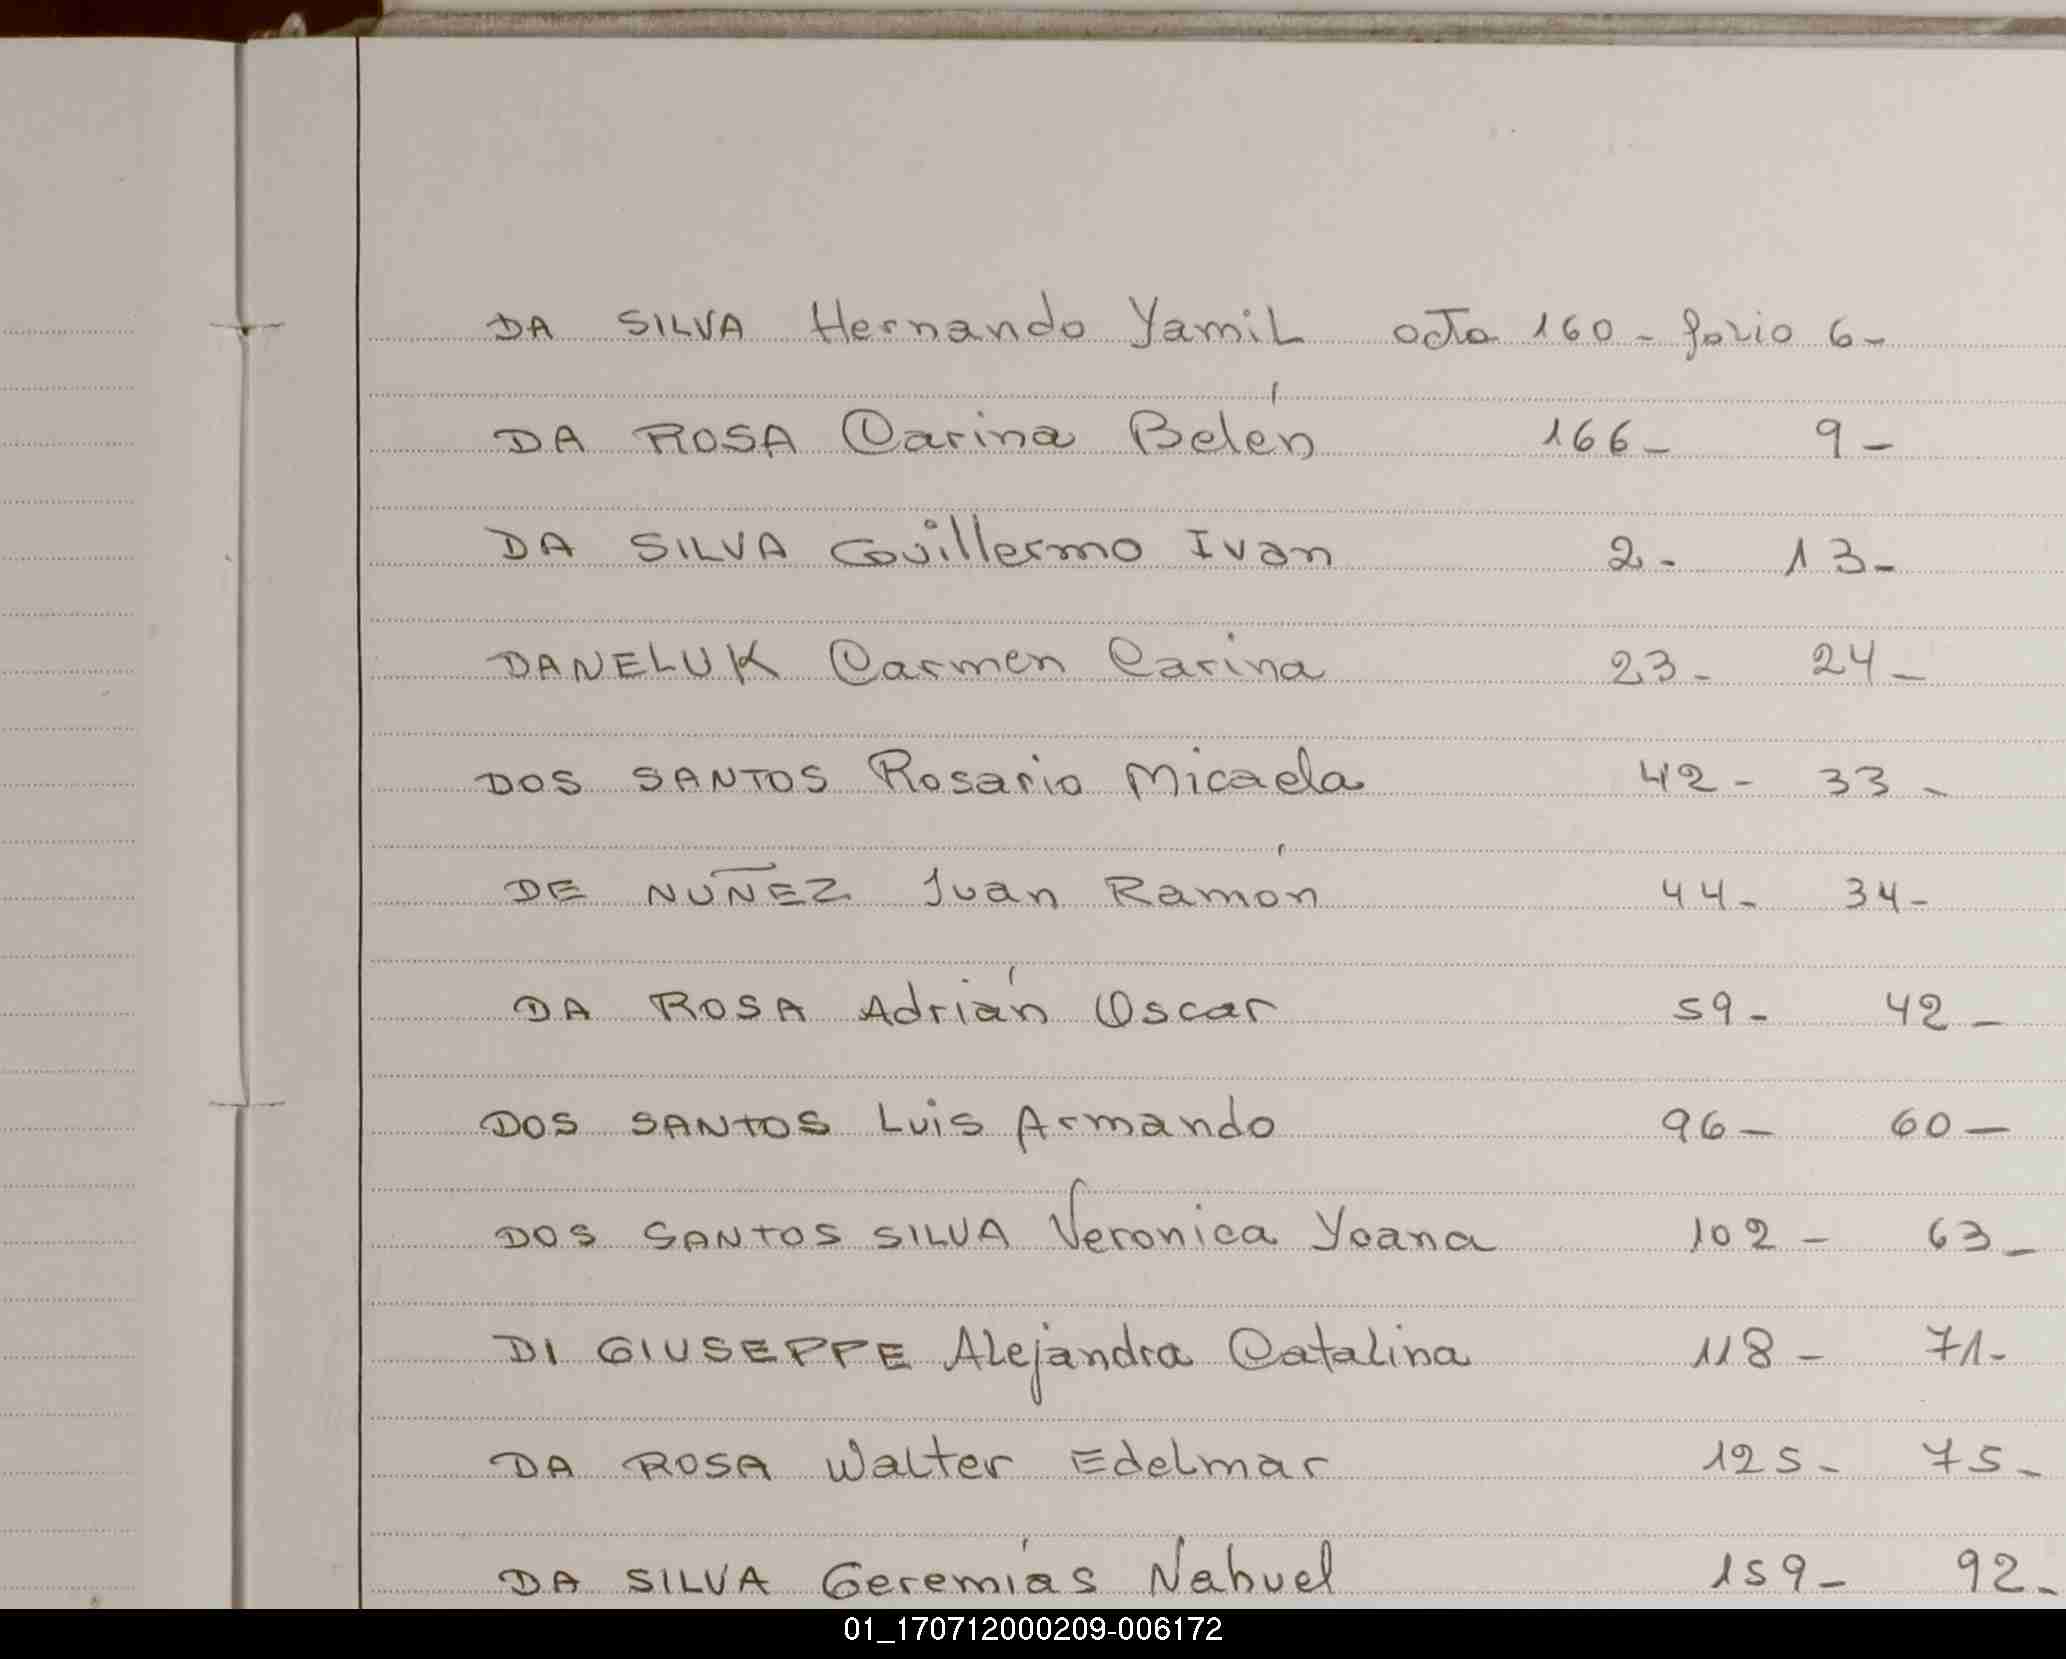 DA SILVA Hernando Yamil acta 160- folio 6-
DA ROSA Carina Belén 166- 9-
DA SILVA Guillermo Ivan 2- 13-
DANELUK Carmen Carina 23- 24-
DOS SANTOS Rosario Micaela 42- 33-
DE NUÑEZ Juan Ramón 44- 34-
DA ROSA Adrián Oscar 59- 42-
DOS SANTOS Luis Armando 96- 60-
DOS SANTOS SILVA Veronica Yoana 102- 63-
DI GIUSEPPE Alejandra Catalina 118- 71-
DA ROSA Walter Edelmar 125- 75-
DA SILVA Geremías Nahuel 159- 92-
01_170712000209-006172